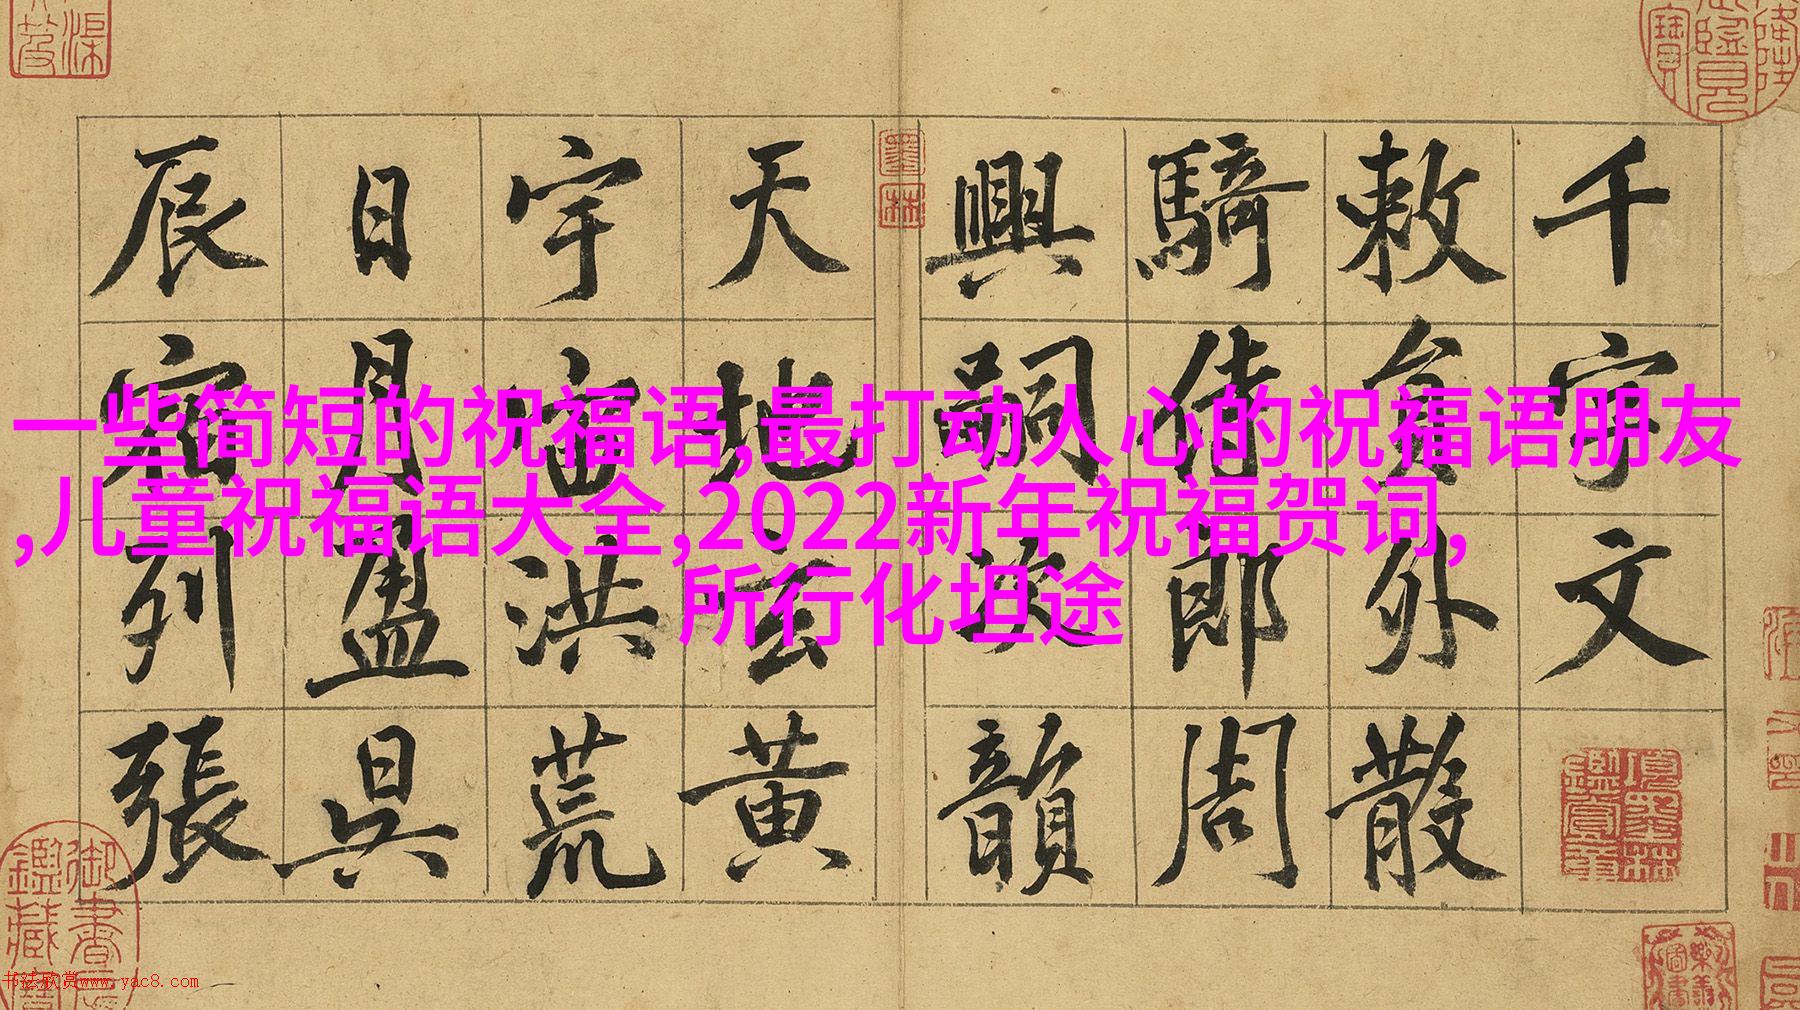 千字文
敕員外散
騎侍郎周
興嗣次韻
天地玄黃
宇宙洪荒
日月盈昃
辰宿列張
墨林
一些简短的祝福语,最打动人心的祝福语朋友
,儿童祝福语大全,2022新年祝福贺词,
所行化坦途
书法欣赏www.yac8.com